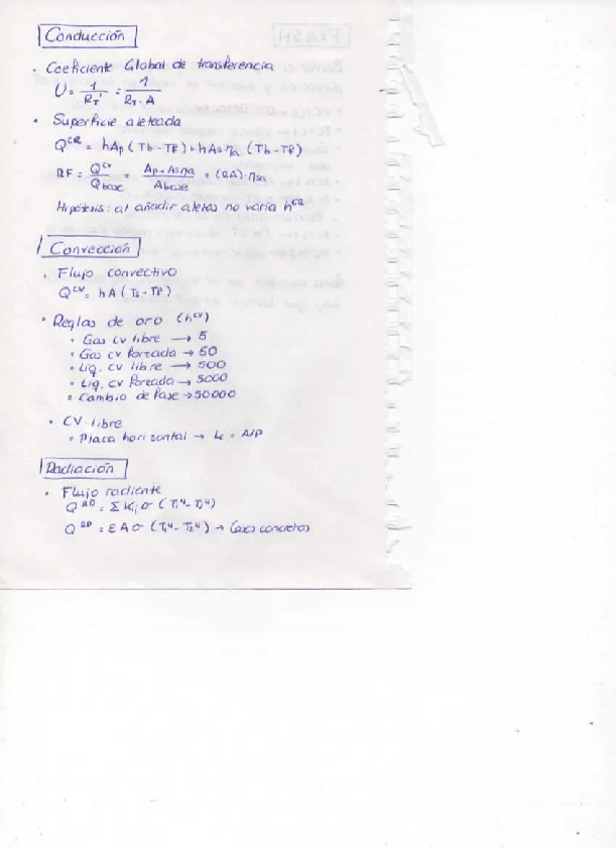 Conducción
• Coeficiente Global de transferencia
U = 1/R_T' = 1/(R_T · A)
• Superficie aleteada
Q^CR = hAp (Tb - TF) + hAs ηa (Tb - TF)
RF = Q^CV/Q base = (Ap + As ηa)/A base = (RA) · ηsa
Hipótesis: al añadir aletas no varía h^CR
Convección
• Flujo convectivo
Q^CV = hA (Ts - TF)
• Reglas de oro (h^CV)
• Gas CV libre → 5
• Gas CV Forzada → 50
• Líq. CV libre → 500
• Líq. CV Forzada → 5000
• Cambio de Fase → 50000
• CV libre
• Placa horizontal → Lc = A/P
Radiación
• Flujo radiente
Q^RD = Σ Kij σ (Ti^4 - Tj^4)
Q^RD = εAσ (T1^4 - T2^4) → Casos concretos
FLASH